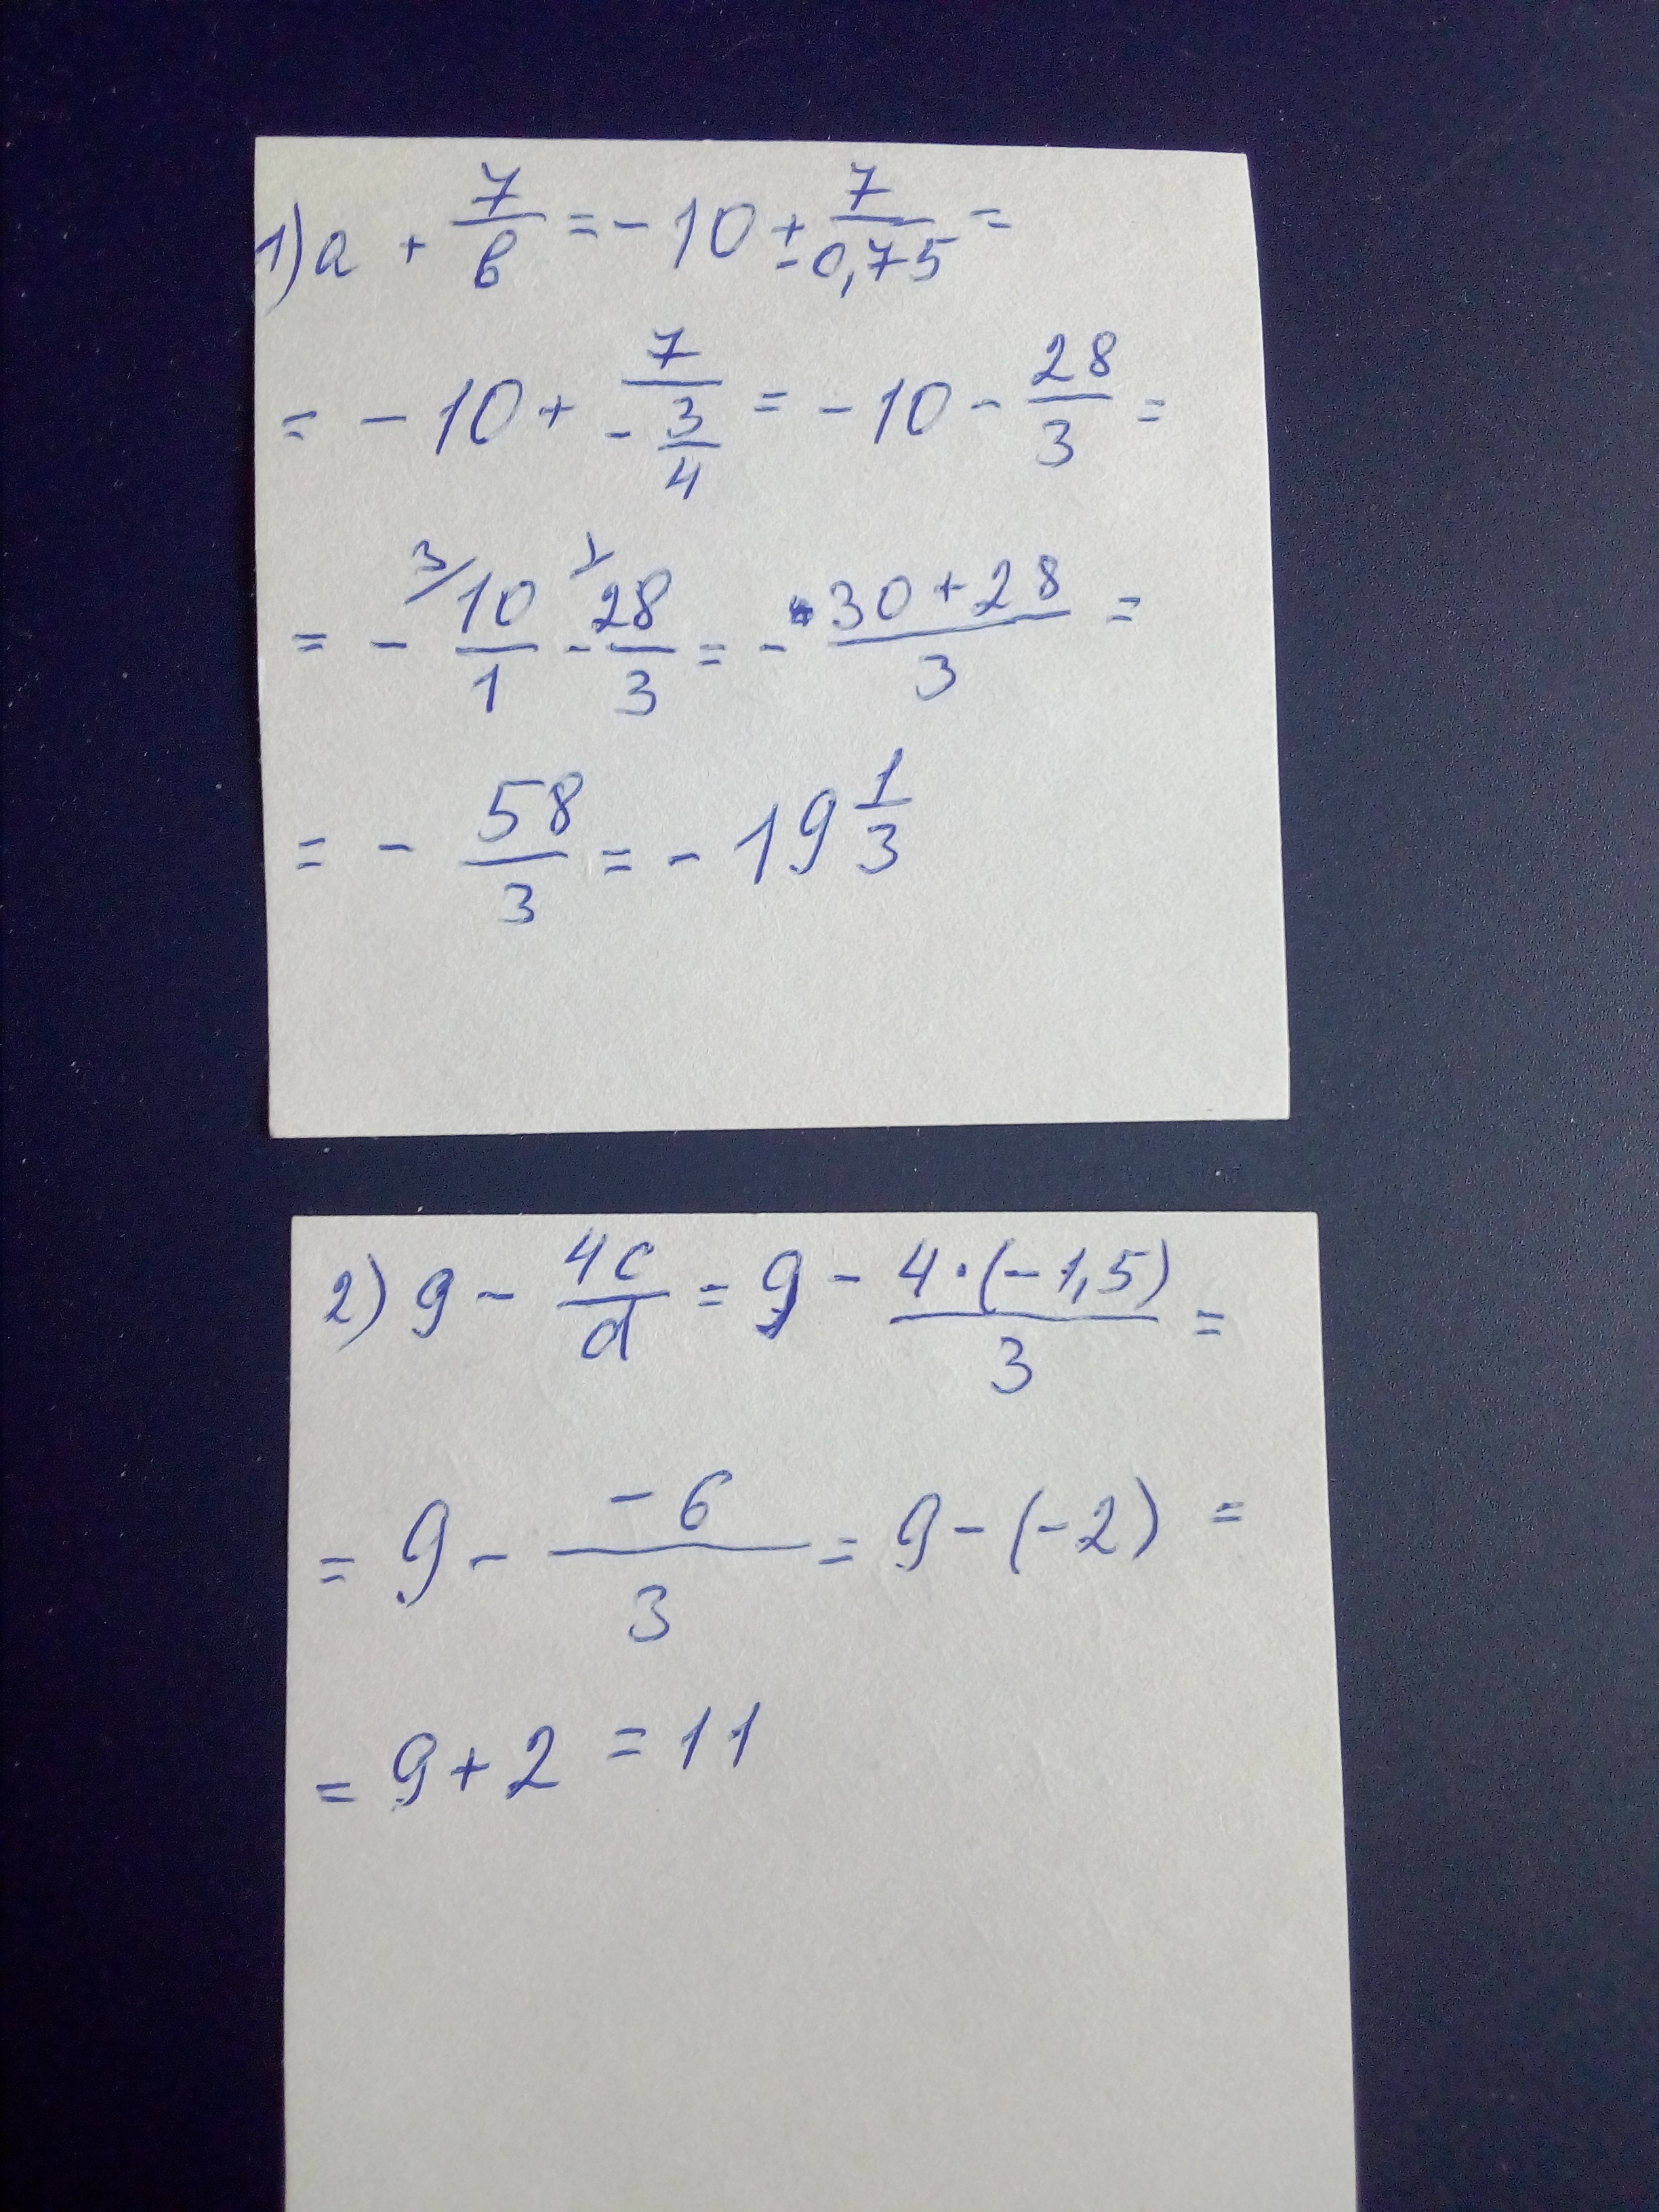 1) a + 7/b = - 10 + 7/-0,75 =
= - 10 + 7/(-3/4) = - 10 - 28/3 =
= - 3/ 10/1 - 1/ 28/3 = - (30 + 28)/3 =
= - 58/3 = - 19 1/3
2) 9 - 4c/d = 9 - (4·(-1,5))/3 =
= 9 - (-6)/3 = 9 - (-2) =
= 9 + 2 = 11